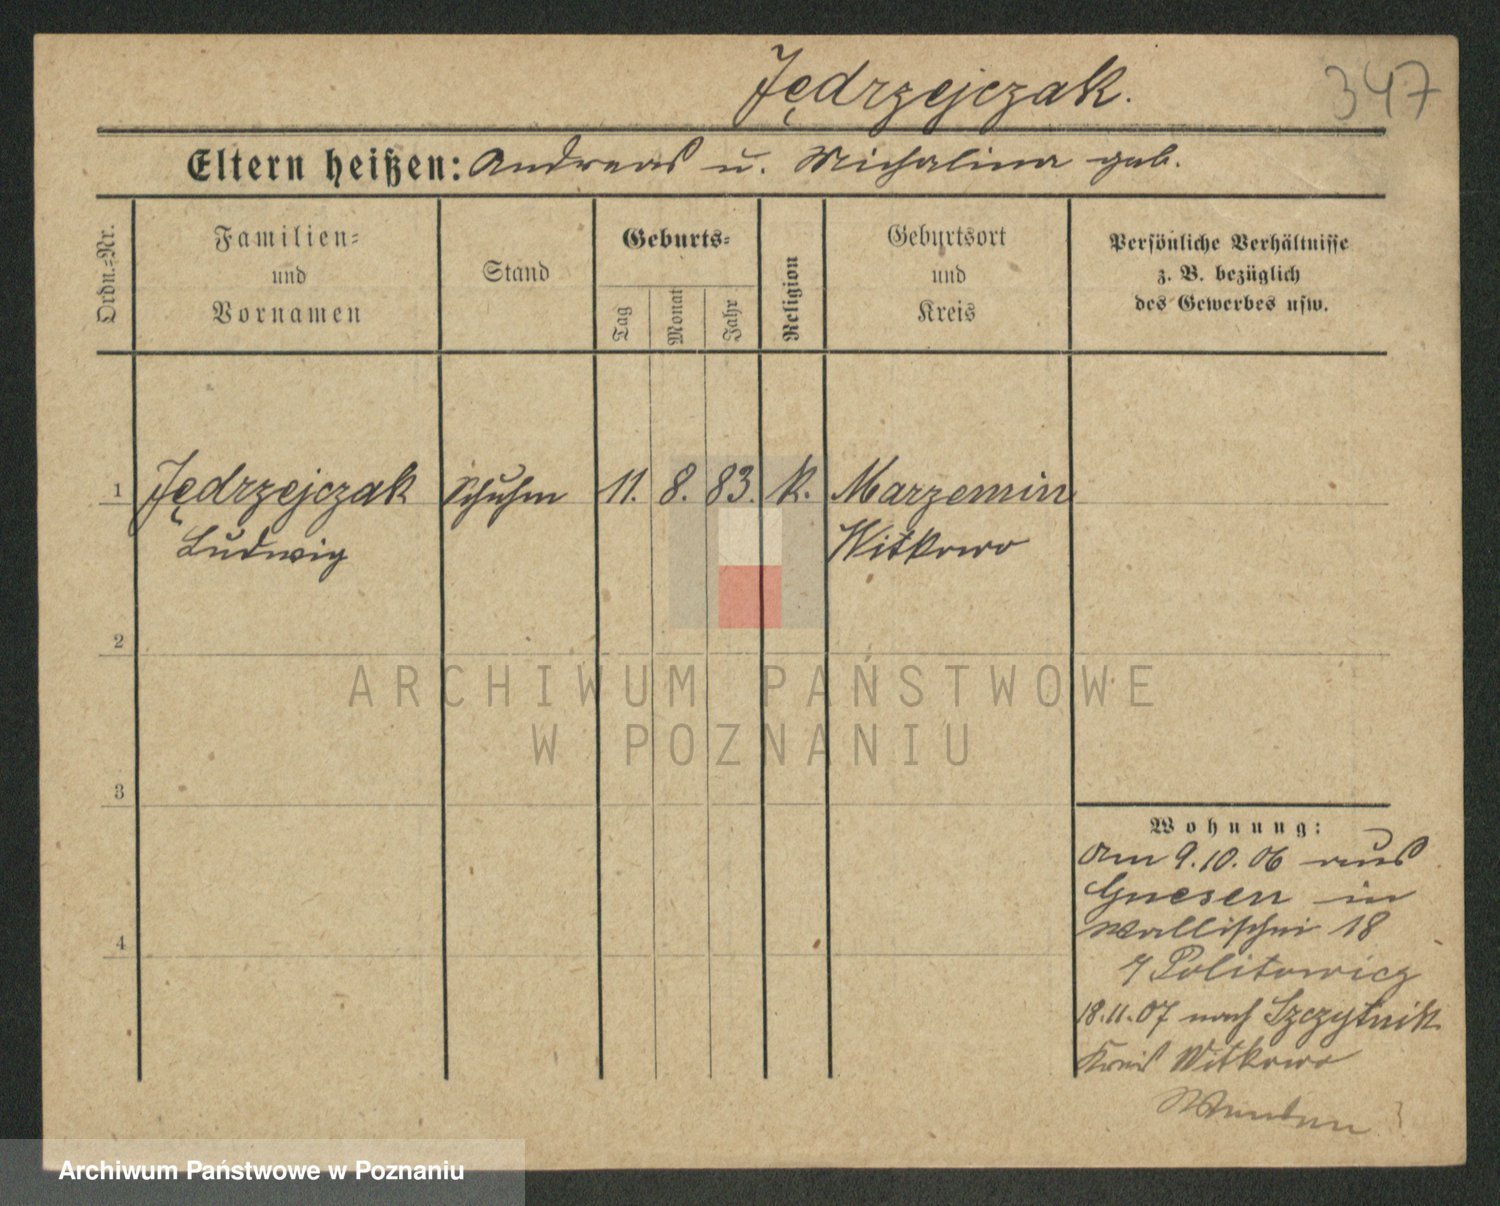 Jędrzejczak.
347
Eltern heißen: Andreas u. Michalina geb.
Ordn.-Nr.
Familien-
und
Vornamen
Stand
Geburts-
Tag
Monat
Jahr
Religion
Geburtsort
und
Kreis
Persönliche Verhältnisse
z. B. bezüglich
des Gewerbes usw.
1 Jędrzejczak Schuhm 11. 8. 83. k. Marzenin
Ludwig Witkowo
2
3
4
Wohnung:
Am 9.10.06 aus
Gnesen in
Wallischei 18
Politowicz
18.11.07 nach Szczytnik
Kreis Witkowo
ARCHIWUM PAŃSTWOWE
W POZNANIU
Archiwum Państwowe w Poznaniu